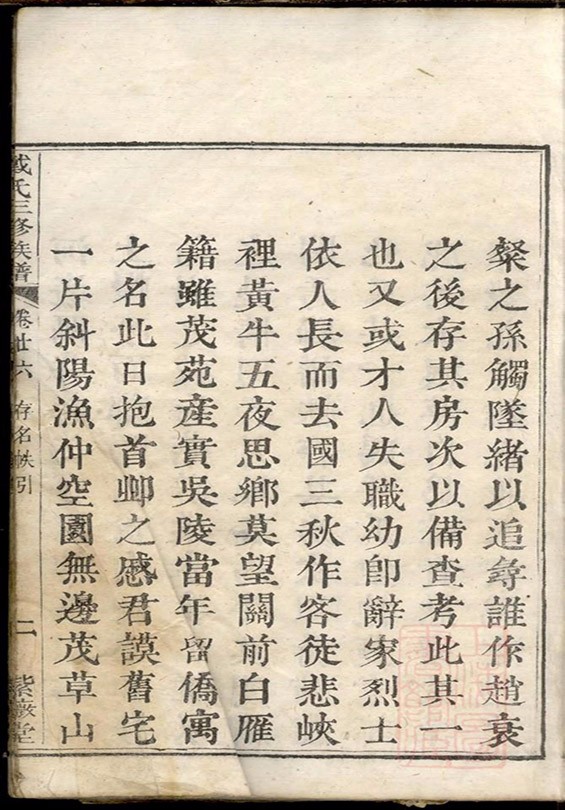 粲之孫觸墜緒以追尋誰作趙衰
之後存其房次以備查考此其一
也又或才人失職幼卽辭家烈士
依人長而去國三秋作客徒悲峽
裡黃牛五夜思鄉莫望關前白雁
籍雖茂苑產實吳陵當年留僑寓
之名此日抱首邱之感君謨舊宅
一片斜陽漁仲空園無邊茂草山
戴氏三修族譜
卷廿六
存名帙引
二
紫巖堂